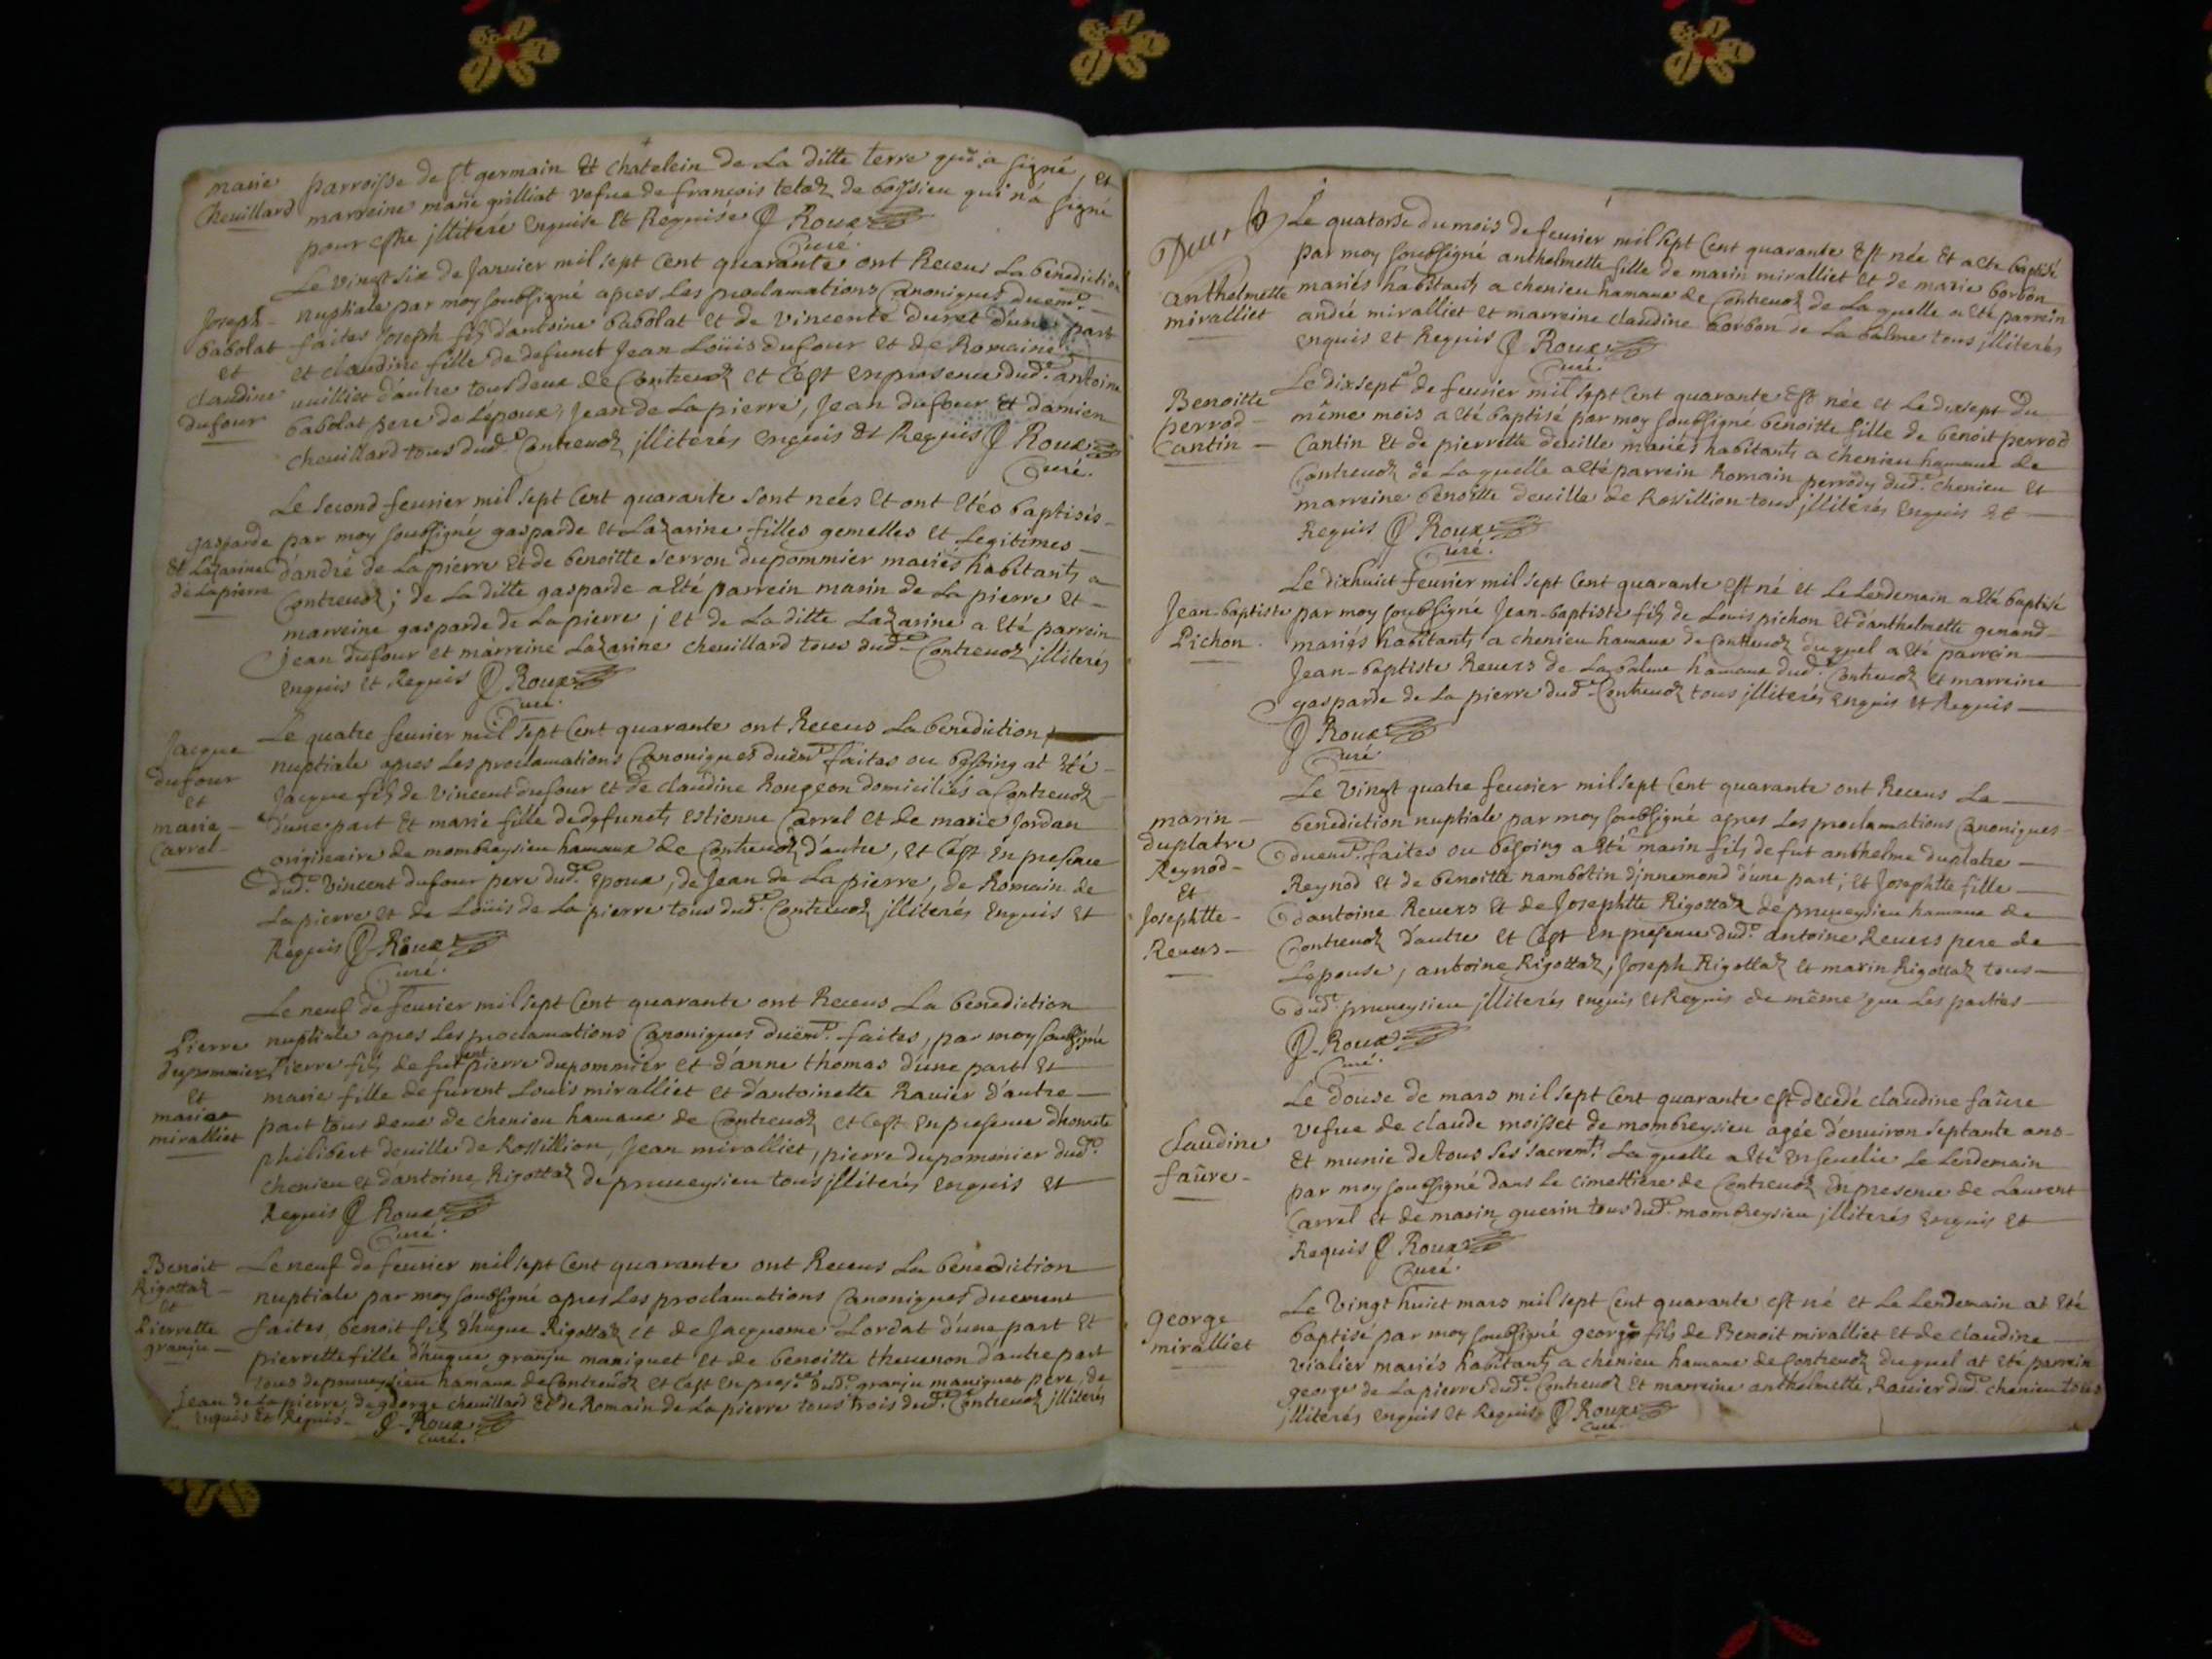 marie
Cheuillard
parroisse de st germain Et chatelein de La ditte terre qui a signé, et
marreine marie grilliat vefue de francois tetaz de boissieu qui n'a signé
pour estre jlliteré Enquise Et Requise J Roux
Curé.
Joseph
babolat
et
claudine
dufour
Le vingt six de Januier mil sept Cent quarante ont Receus La bénediction
nuptiale par moy soubsigné apres Les proclamations Canoniques duemt
faites Joseph fils d'antoine babolat et de vincente duret d'une part
et claudine fille de defunct Jean Loüis dufour et de Romaine
uuilliet d'autre tous deux de Contreuoz et C'est En presence dud. antoine
babolat pere de L'époux, Jean de La pierre, Jean dufour et damien
cheuillard tous dud. Contreuoz jlliterés enquis Et Requis J Roux
Curé.
gasparde
et Lazarine
de Lapierre
Le second feurier mil sept Cent quarante sont nées Et ont Etés baptisés
par moy soubsigné gasparde et Lazarine filles gemelles et Legitimes
d'andré de La pierre Et de benoitte serron dupommier mariés habitants a
Contreuoz; de La ditte gasparde a Eté parrein marin de La pierre et
marreine gasparde de La pierre; et de La ditte Lazarine a Eté parrein
Jean dufour et marreine Lazarine cheuillard tous dud. Contreuoz jlliterés
enquis et Requis J Roux
Curé.
Jacque
dufour
et
marie
Carrel
Le quatre feurier mil sept Cent quarante ont Receus La benediction
nuptiale apres Les proclamations Canoniques duemt faites ou besoing at Eté
Jacque fils de vincent dufour et de claudine Rougeon domiciliés a Contreuoz
d'une part et marie fille de defuncts Estienne Carrel et de marie Jordan
originaire de mombreysieu hamaux de Contreuoz d'autre, et C'est En presence
dud. vincent dufour pere dud. Epoux, de Jean de La pierre, de Romain de
La pierre et de Loüis de La pierre tous dud. Contreuoz jlliterés Enquis Et
Requis J Roux
Curé.
Pierre
dupommier
Et
marie
miralliet
Le neuf de feurier mil sept Cent quarante ont Receus La benediction
nuptiale apres Les proclamations Canoniques duemt. faites, par moy soubsigné
Pierre fils de furent pierre dupommier et d'anne thomas d'une part Et
marie fille de furent Louis miralliet et d'antoinette Rauier d'autre
part tous deux de chenieu hamaux de Contreuoz et C'est En presence d'honnete
philibert deuille de Rossillion, Jean miralliet, pierre dupommier dud.
chenieu et d'antoine Rigottaz de prüueysieu tous jlliterés enquis et
Requis J Roux
Curé.
Benoit
Rigottaz
Et
Pierrette
granju
Le neuf de feurier mil sept Cent quarante ont Receus La benediction
nuptiale par moy soubsigné apres Les proclamations Canoniques duement
faites benoit fils d'hugue Rigottaz et de Jacqueme Lordat d'une part Et
pierrette fille d'hugue granju maniquet et de benoitte theuenon d'autre part
tous de prüueysieu hamaux de Contreuoz et C'est En prese dud. granju maniquet pere, de
Jean de La pierre, de george cheuillard Et de Romain de La pierre tous trois dud. Contreuoz jlliterés
enquis Et Requis J Roux
Curé.
Deux
anthelmette
miralliet
Le quatorse du mois de feurier mil sept Cent quarante Est née Et a eté baptisé
par moy soubsigné anthelmette fille de marin miralliet et de marie borbon
mariés habitants a chenieu hamaux de Contreuoz de La quelle a Eté parrein
andré miralliet et marreine claudine borbon de La balme tous jlliterés
enquis et Requis J Roux
Curé.
Benoitte
perrod
Cantin
Le dixsept de feurier mil sept Cent quarante Est née et Le dixsept du
même mois a Eté baptisé par moy soubsigné benoitte fille de benoit perrod
Cantin Et de pierrette deuille mariés habitants a chenieu hamaux de
Contreuoz de La quelle a Eté parrein Romain perrody dud. chenieu et
marreine benoitte deuille de Rossillion tous jlliterés enquis et
Requis J Roux
Curé.
Jean-baptiste
Pichon
Le dixhuict feurier mil sept Cent quarante est né et Le Lendemain a Eté baptisé
par moy soubsigné Jean-baptiste fils de Louis pichon Et d'anthelmette genand
mariés habitants a chenieu hamaux de Contreuoz duquel a Eté parrein
Jean-baptiste Reuers de La balme hamaux dud. Contreuoz et marreine
gasparde de La pierre dud. Contreuoz tous jlliterés enquis et Requis
J Roux
Curé
marin
duplatre
Reynod
Et
Josephtte
Reuers
Le vingt quatre feurier mil sept Cent quarante ont Receus La
benediction nuptiale par moy soubsigné apres Les proclamations Canoniques
duemt. faites ou besoing a Eté marin fils de fut anthelme duplatre
Reynod et de benoitte nambotin d'jnnemond d'une part; et Josephtte fille
d'antoine Reuers Et de Josephtte Rigottaz de prüueysieu hamaux de
Contreuoz d'autre et C'est En presence dud. antoine Reuers pere de
L'epouse, antoine Rigottaz, Joseph Rigottaz et marin Rigottaz tous
dud. prüueysieu jlliterés enquis et Requis de même que Les parties
J. Roux
Curé.
Claudine
faûre
Le douse de mars mil sept Cent quarante est decedé claudine faûre
vefue de claude moisset de mombreysieu agée d'enuiron septante ans
Et munie de tous ses sacremts La quelle a Eté Enseuelie Le Lendemain
par moy soubsigné dans Le cimettiere de Contreuoz En presence de Laurent
Carrel et de marin guerin tous dud. mombreysieu jlliterés enquis et
Requis J Roux
Curé.
george
miralliet
Le vingt huict mars mil sept Cent quarante est né et Le Lendemain at Eté
baptisé par moy soubsigné george fils de Benoit miralliet et de claudine
vialier mariés habitants a chenieu hamaux de Contreuoz duquel at Eté parrein
george de La pierre dud. Contreuoz Et marreine anthelmette Rauier dud. chenieu tous
jlliterés enquis et Requis J Roux
Curé.